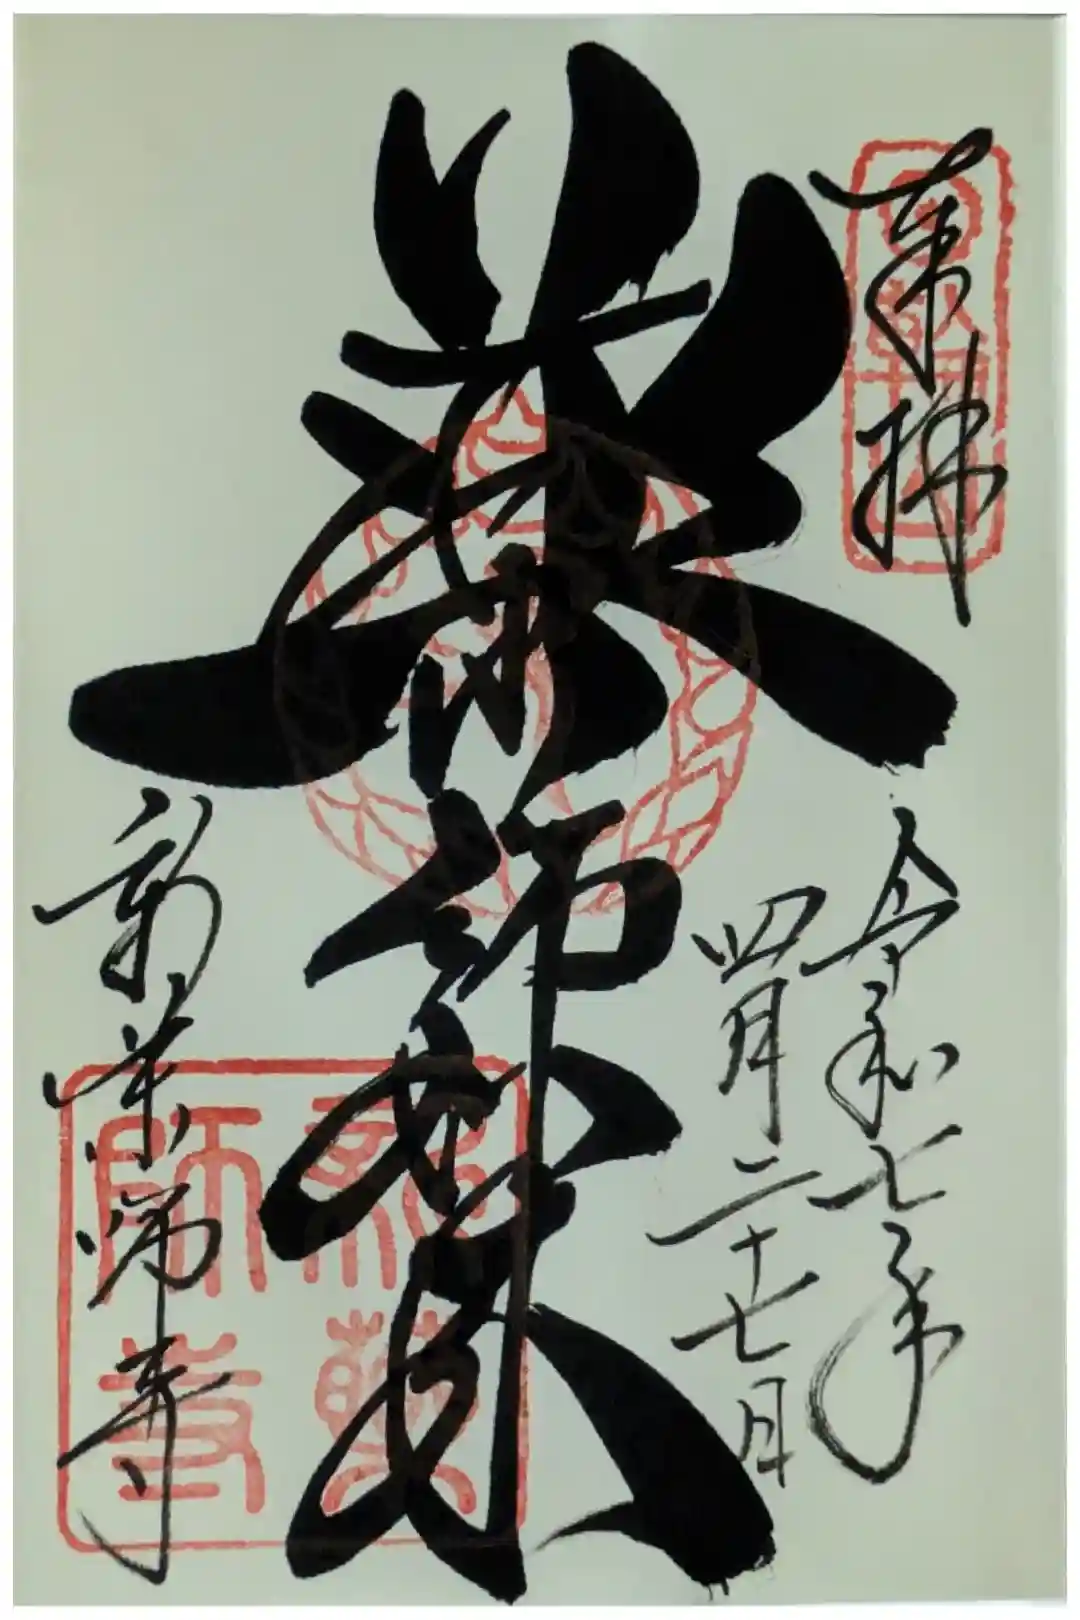 奉拝
令和七年
四月二十七日
薬師如来
新薬師寺
新薬師寺